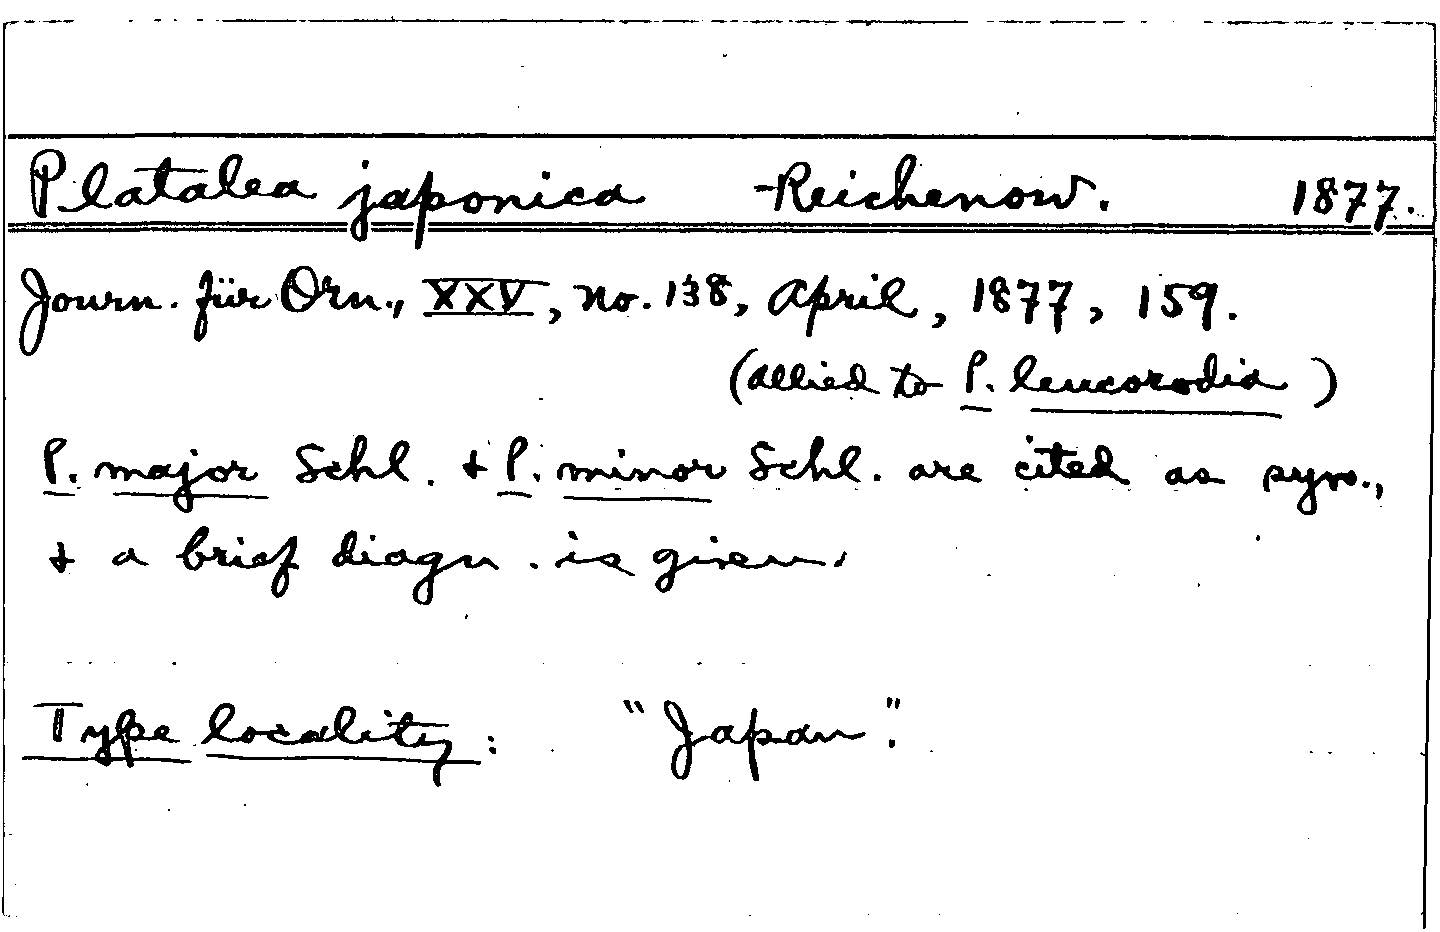 Platalea japonica Reichenow. 1877.
Journ. für Orn., XXV, no. 138, April, 1877, 159.
(allied to P. leucorodia)
P. major Schl. & P. minor Schl. are cited as syn.,
& a brief diagn. is given.
Type locality: "Japan".